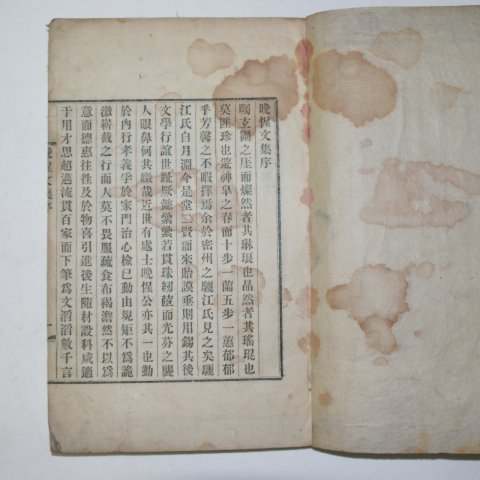 晩惺文集序
矚玄圃之庄而燦然者其琳琅也晶然者其瑤琨也
莫匪珍也遊神皐之春而十步一蘭五步一蕙郁郁
乎芳馨之不暇擇焉余於密州之驪江氏見之矣驪
江氏自月淵今是堂二賢而來貽謨垂則用錫其後
文學行誼世趾厥懿纍纍若貫珠紉蘭而光芬之襲
人眼鼻何其縟哉近世有處士晩惺公亦其一也勤
於內行孝義孚於家門治心檢己動由規矩不爲詭
激嶄截之行而人莫不畏服疏食布褐澹然不以爲
意而德惠往往及於物喜引進後生隨材設科咸適
于用才思超邁淹貫百家而下筆爲文滔滔數千言
晩惺文集序 一